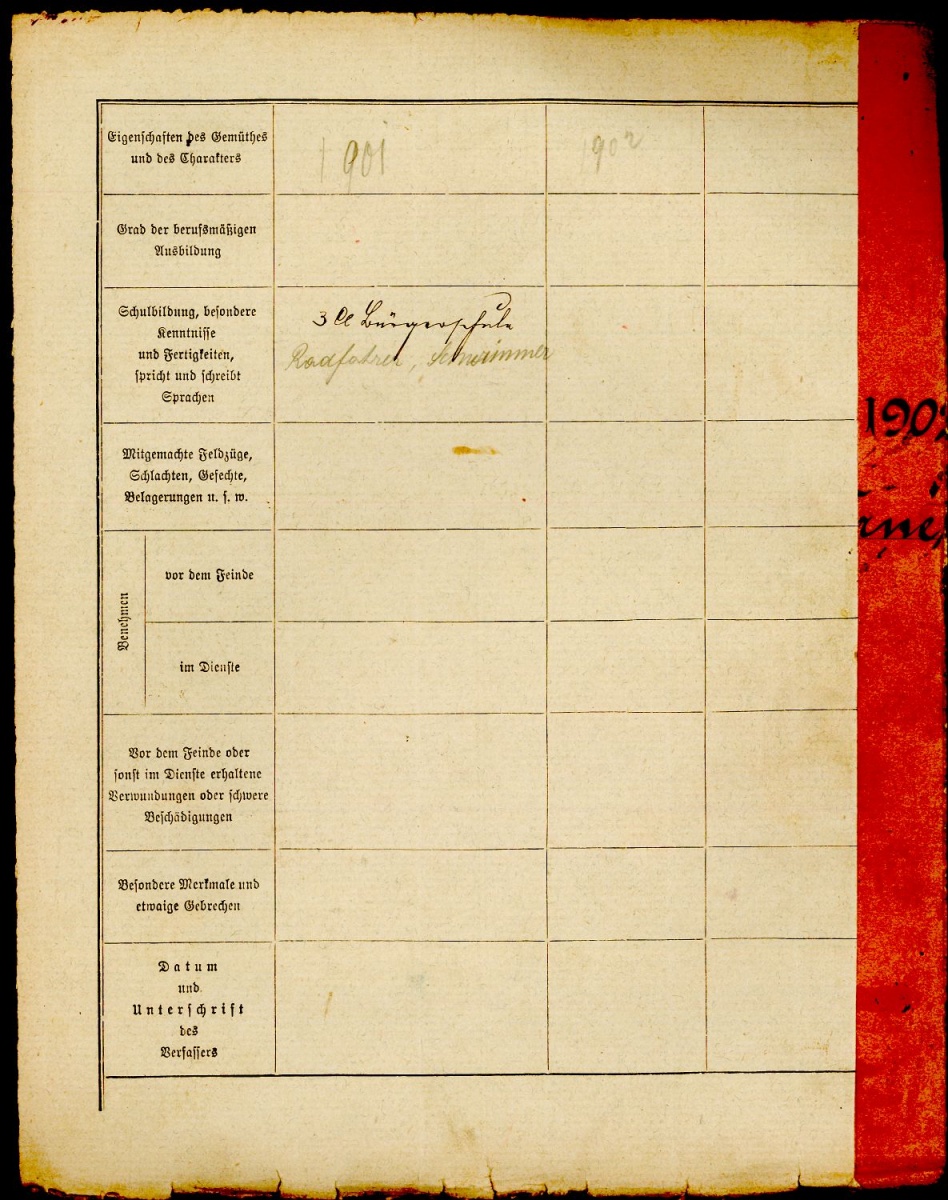 Eigenschaften des Gemüthes
und des Charakters
1901
1902
Grad der berufsmäßigen
Ausbildung
Schulbildung, besondere
Kenntnisse
und Fertigkeiten,
spricht und schreibt
Sprachen
3 Cl Bürgerschule
Radfahrer, Schwimmer
Mitgemachte Feldzüge,
Schlachten, Gefechte,
Belagerungen u. s. w.
Benehmen
vor dem Feinde
im Dienste
Vor dem Feinde oder
sonst im Dienste erhaltene
Verwundungen oder schwere
Beschädigungen
Besondere Merkmale und
etwaige Gebrechen
Datum
und
Unterschrift
des
Verfassers
190